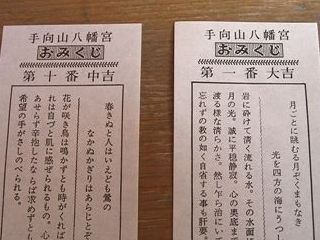 手向山八幡宮
おみくじ
第一番 大吉
月ごとに眺むる月ぞくまもなき
光を四方の海にうつ
岩に砕けて清く流れる水。その水面
月の光。誠に平穏静寂、心の奥底ま
渡る様な清らかさ。然し乍ら治にいて
忘れずの教の如く自省する事も肝要
手向山八幡宮
おみくじ
第十番 中吉
春きぬと人はいえども鶯の
なかぬかぎりはあらじとぞ
花が咲き鳥は鳴かずとも時がくれば
れは自づと肌に感ぜられるもの。心
あせらず辛抱したならば求めずと
希望の手がさしのべられる。